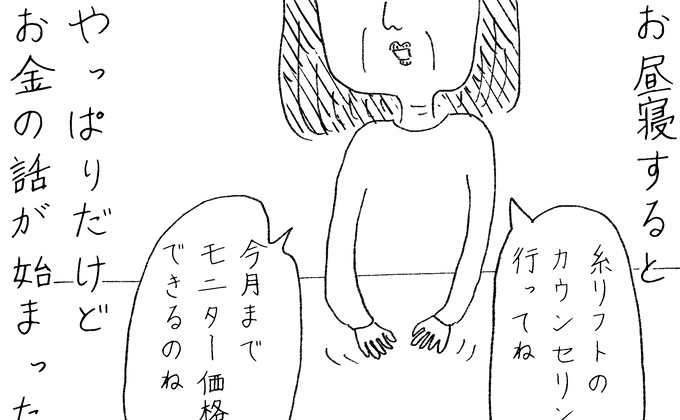 お昼寝すると
糸リフトの
カウンセリン
行ってね
今月まで
モニター価格
できるのね
やっぱりだけど
お金の話が始まった